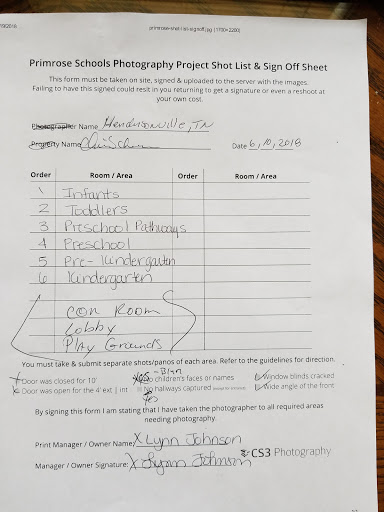 primrose-shot-list-signoff.jpg (1700×2200)
Primrose Schools Photography Project Shot List & Sign Off Sheet
This form must be taken on site, signed & uploaded to the server with the images.
Failing to have this signed could reslt in you returning to get a signature or even a reshoot at
your own cost.
Photographer Name Hendersonville, TN
Property Name Date 6/10/2018
Order Room / Area Order Room / Area
1 Infants
2 Toddlers
3 Preschool Pathways
4 Preschool
5 Pre-Kindergarten
6 Kindergarten
Con Room
Lobby
Play Grounds
You must take & submit separate shots/panos of each area. Refer to the guidelines for direction.
Door was closed for 10' Yes No children's faces or names Window blinds cracked
Door was open for the 4' ext | int No hallways captured Wide angle of the front
Yes
By signing this form I am stating that I have taken the photographer to all required areas
needing photography.
Print Manager / Owner Name: X Lynn Johnson
Manager / Owner Signature: X Lynn Johnson
CS3 Photography